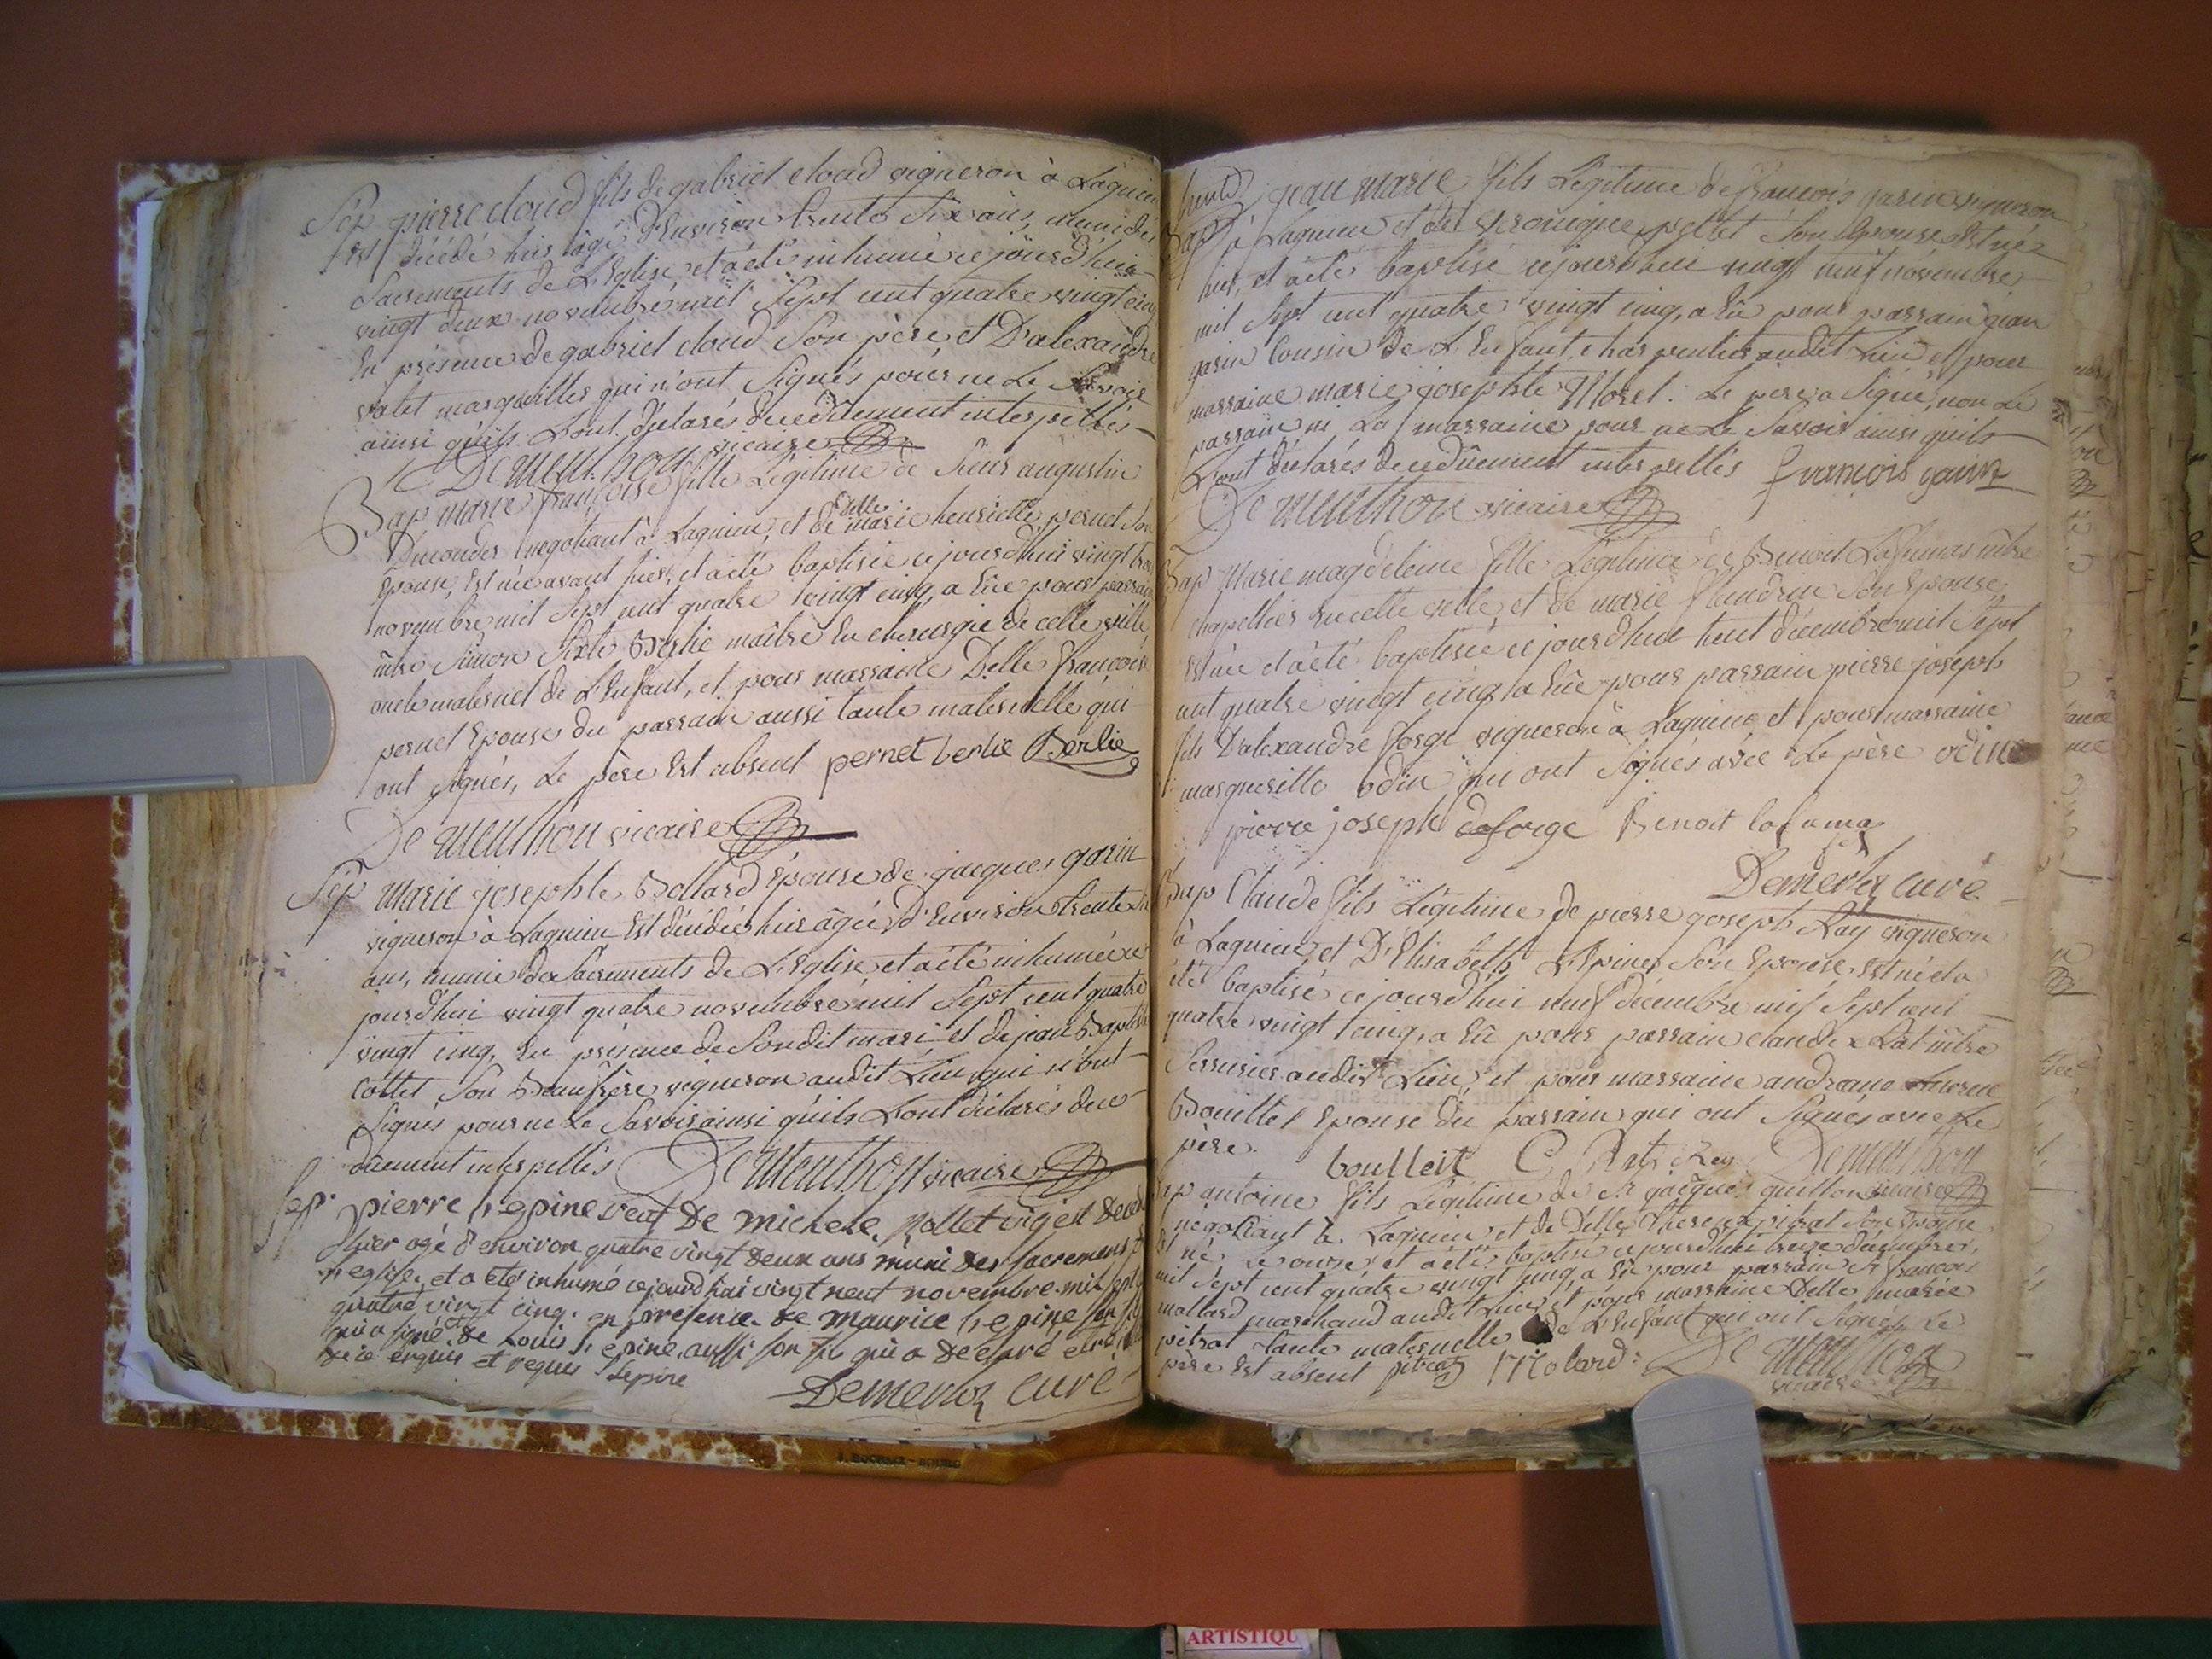 Sep pierre cloud fils de gabriel cloud vigneron à Lagnieu
est décédé hier âgé D'Environ trente Six ans, muni des
Sacrements de L'Eglise et a été inhumé ce jourd'hui
vingt deux novembre mil Sept cent quatre vingt cinq
En présence de gabriel cloud Son père et D'alexandre
valet marguillier qui n'ont Signés pour ne Le Savoir
ainsi qu'ils L'ont déclarés de ce dûement interpellés
De Menthon vicaire
Bap marie françoise fille Légitime de Sieur augustin
negotiant à Lagnieu, et de Delle marie henriette pernet Son
Epouse, Est née avant hier, et a été baptisée ce jourd'hui vingt trois
novembre mil Sept cent quatre vingt cinq, a Eûe pour parrain
mtre Simon Berlie maître En chirurgie de cette ville
oncle maternel de L'Enfant, et pour marraine Delle françoise
pernet Epouse du parrain aussi tante maternelle qui
ont Signés, Le père Est absent pernet berlie Berlie
De Menthon vicaire
Sep Marie josephte Bollard Epouse de jacques garin
vigneron à Lagnieu Est décédée hier âgée D'Environ trente
ans, munie des Sacrements de L'Eglise et a été inhumée ce
jourd'hui vingt quatre novembre mil Sept cent quatre
vingt cinq, En présence de Son dit mari et de jean Baptiste
Collet Son Beaufrère vigneron audit Lieu qui n'ont
Signés pour ne Le Savoir ainsi qu'ils L'ont déclarés de ce
dûement interpellés De Menthon vicaire
Sep. pierre Lepine veuf De michele Mollet est decedé
hier agé d'environ quatre vingt deux ans muni des Sacremens
eglise et a été inhumé cejourd'hui vingt neuf novembre mil sept
quatre vingt cinq. en presence de maurice Lepine son fils
qui a signé et de Louis Lepine aussi son fils qui a declaré
de ce enquis et requis Lepine
Demerloz curé
Bap jean marie fils Légitime de françois garin vigneron
à Lagnieu et de veronique pettet Son Epouse Est né
hier, et a été baptisé cejourd'hui vingt neuf novembre
mil Sept cent quatre vingt cinq, a Eû pour parrain jean
garin Cousin de L'Enfant charpentier audit Lieu et pour
marraine marie josephte Morel. Le père a Signé, non Le
parrain ni La marraine pour ne Le Savoir ainsi qu'ils
L'ont déclarés de ce dûement interpellés françois garin
De Menthon vicaire
Bap Marie magdeleine fille Légitime de Benoit Laffumas mtre
chapellier En cette ville, et de marie flandrin Son Epouse,
Est née et a été baptisée ce jourd'hui huit décembre mil Sept
cent quatre vingt cinq, a Eûe pour parrain pierre joseph
fils D'alexandre forge vigneron à Lagnieu, et pour marraine
marguerite odin qui ont Signés avec Le père odin
pierre joseph deforge Benoit lafuma
Demerloz curé
Bap Claude fils Légitime de pierre joseph Ray vigneron
à Lagnieu, et D'Elisabeth L'Epine Son Epouse, Est né et a
été baptisé ce jourd'hui neuf décembre mil Sept cent
quatre vingt cinq, a Eû pour parrain claude Rat mtre
Serrurier audit Lieu, et pour marraine andréane
Bouillet Epouse du parrain qui ont Signés avec Le
père. boulleit C Rat Rey De Menthon
vicaire
Bap antoine fils Légitime de Sr jacques guillon
négotiant à Lagnieu et de Delle therese pitrat Son Epouse
Est né Le onze et a été baptisé ce jourd'hui treize décembre,
mil Sept cent quatre vingt cinq, a Eû pour parrain Sr françois
mollard marchand audit Lieu, et pour marraine Delle
pitrat tante maternelle de L'Enfant qui ont Signés Le
père Est absent pitrat Molard De Menthon
vicaire
ARTISTIQU